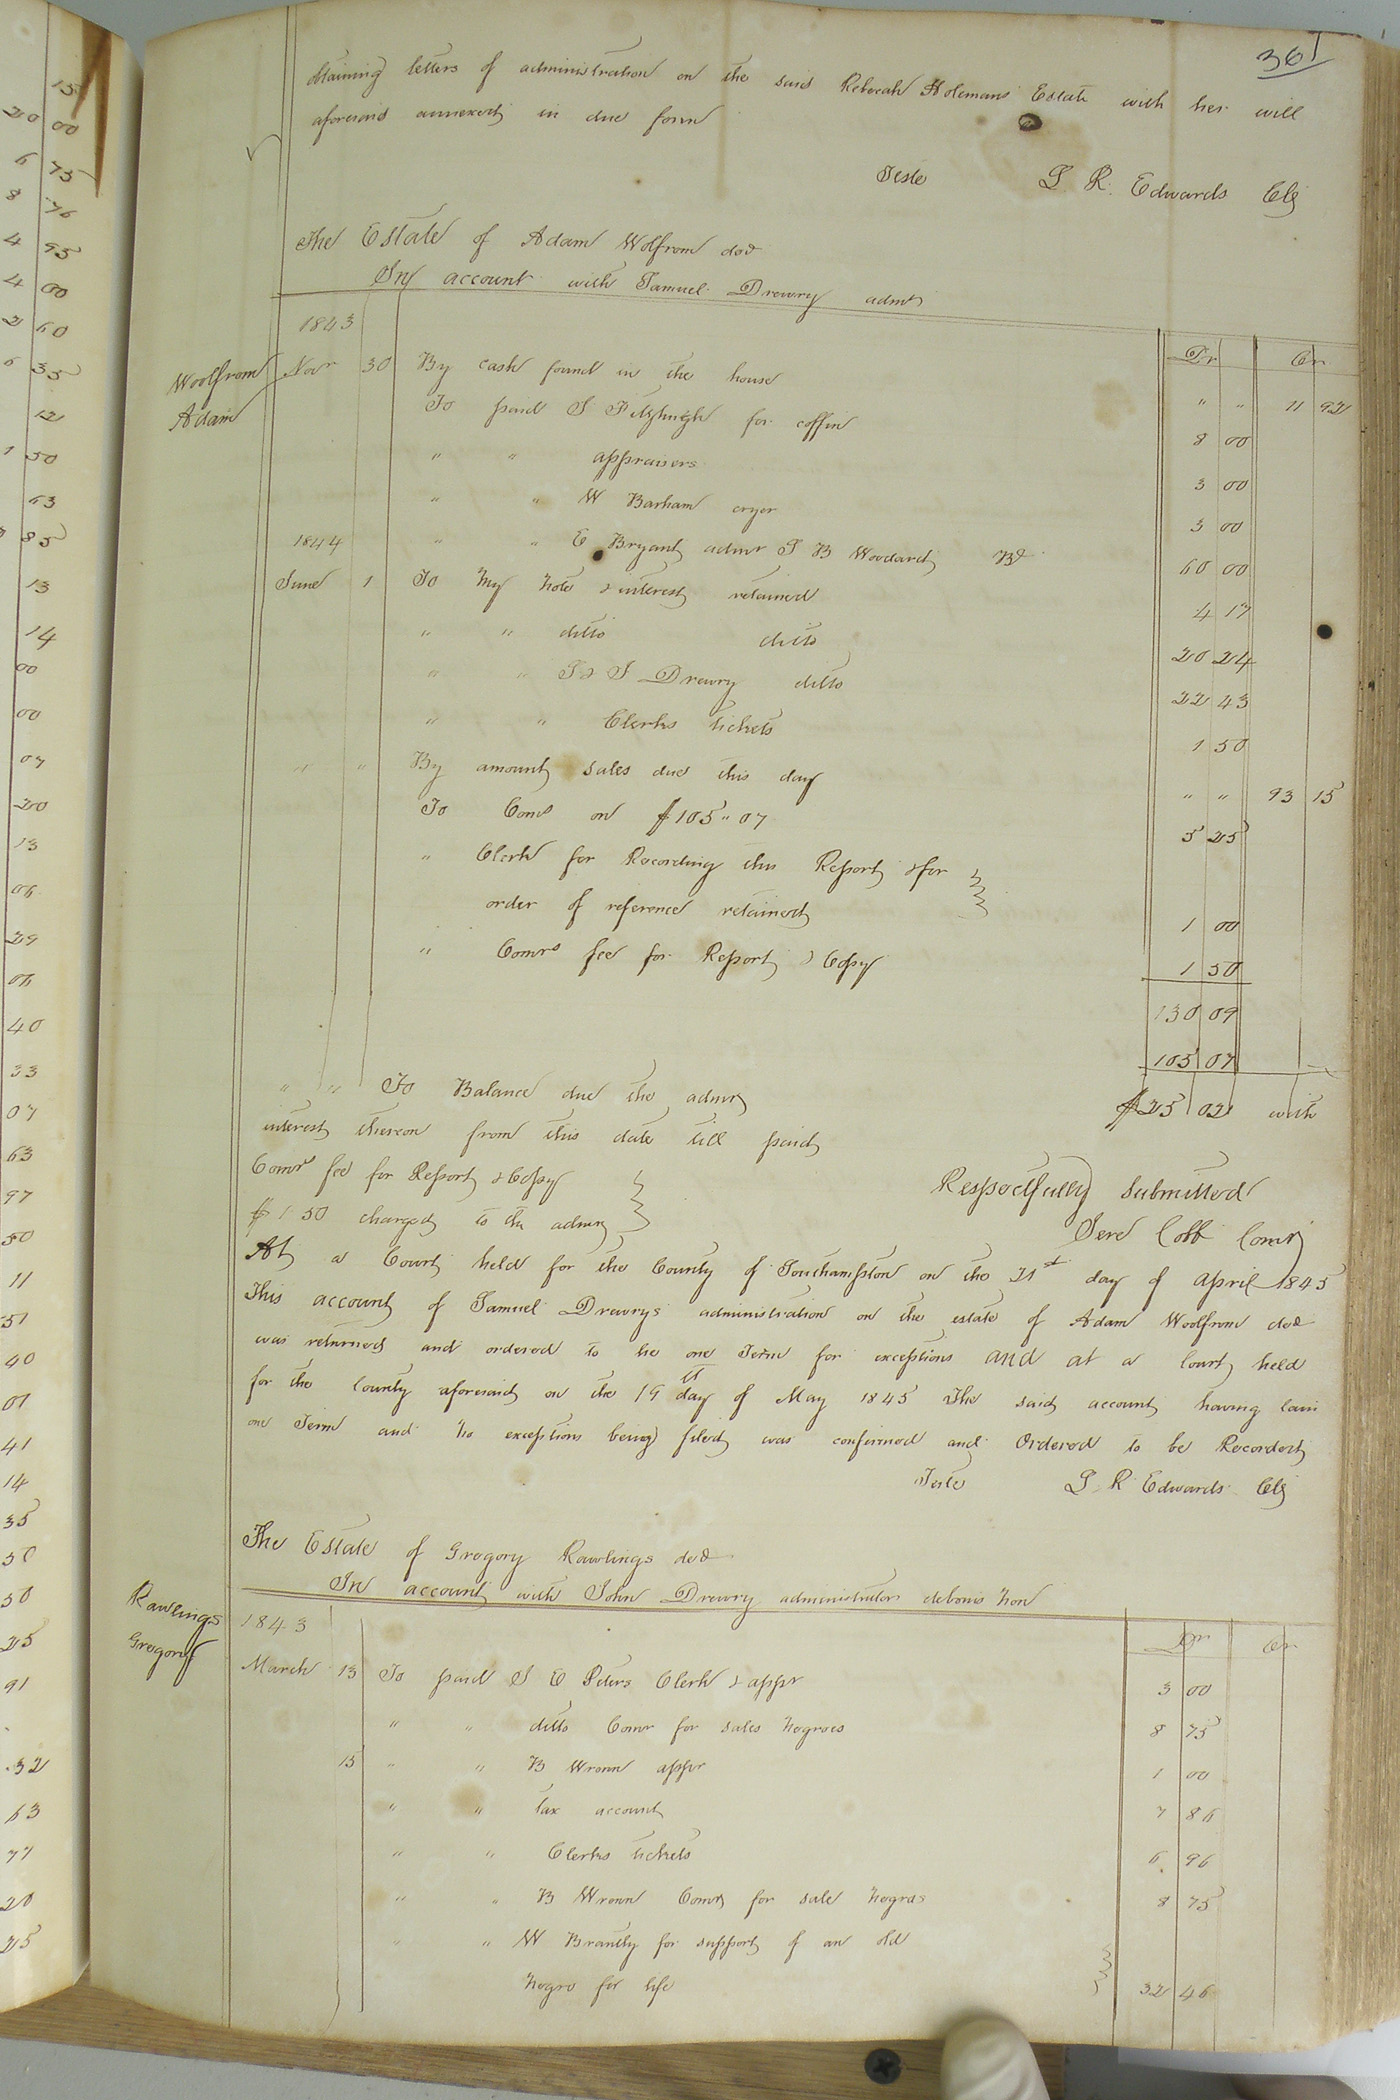 361
obtaining letters of administration on the said Rebecah Holemans Estate with her will
aforesaid annexed in due form
Teste L. R. Edwards Clk
The Estate of Adam Wolfrom decd
In account with Samuel Drewry admr
1843
Dr Cr
Woolfrom Adam
Novr 30 By cash found in the house " " 11 92
To paid S Fitzhugh for coffin 8 00
" " appraisers 3 00
" " W Barham cryer 3 00
1844 " " E Bryant admr S B Woodard Bd 60 00
June 1 To my note & interest retained 4 17
" " ditto ditto 20 24
" " Ts S Drewry ditto 22 43
" " Clerks tickets 1 50
" " By amount sales due this day " " 93 15
To Coms on $105 " 07 5 25
" Clerk for Recording this Report & for
order of reference retained 1 00
" Comrs fee for Report & Copy 1 50
130 09
105 07
" " To Balance due the admr $25 02 with
interest thereon from this date till paid
Comrs fee for Report & Copy
$1 50 charged to the admr
Respectfully submitted
Jere Cobb Comr
At a Court held for the County of Southampton on the 21st day of April 1845
This account of Samuel Drewrys administration on the estate of Adam Woolfrom decd
was returned and ordered to lie one Term for exceptions and at a Court held
for the County aforesaid on the 19th day of May 1845 The said account having lain
one Term and no exceptions being filed was confirmed and Ordered to be Recorded
Teste L. R. Edwards Clk
The Estate of Gregory Rawlings decd
In account with John Drewry administrator debonis non
Rawlings Gregory
1843 Dr Cr
March 13 To paid S E Peters Clerk & appr 3 00
" " ditto Comr for sales negroes 8 75
15 " " B Wrenn appr 1 00
" " tax account 7 86
" " Clerks tickets 6 96
" " B Wrenn Comr for sale negros 8 75
" " W Brantly for support of an old
negro for life 32 46
15
20 00
6 75
8 76
4 95
4 00
2 60
6 35
12
1 50
63
85
13
14
00
00
07
20
13
06
29
06
40
33
07
63
97
50
11
51
40
01
41
14
35
50
50
25
91
32
63
77
20
25